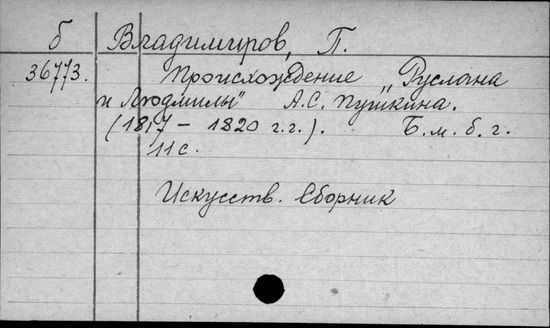 б Владимиров, П.
36773. Происхождение „Руслана
и Людмилы" А.С. Пушкина.
(1817 – 1820 г.г.). Б.м.б.г.
11 с.
Искусств. Сборник